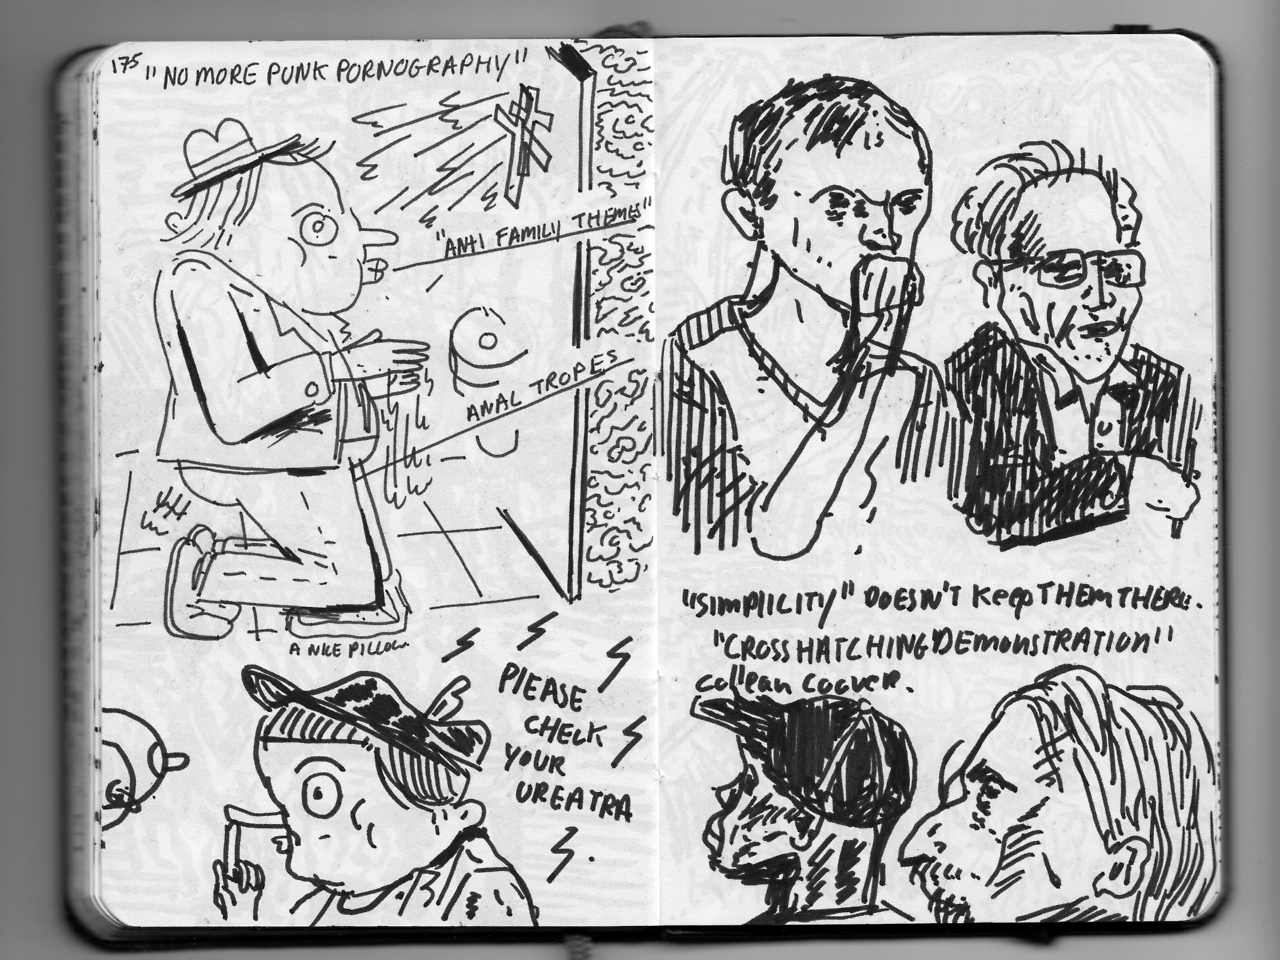 175
"NO MORE PUNK PORNOGRAPHY"
"ANTI FAMILY THEMES"
ANAL TROPES
A NICE PILLOW
PLEASE
CHECK
YOUR
UREATRA
"SIMPLICITY" DOESN'T KEEP THEM THERE.
"CROSSHATCHING DEMONSTRATION"
colleen coover.